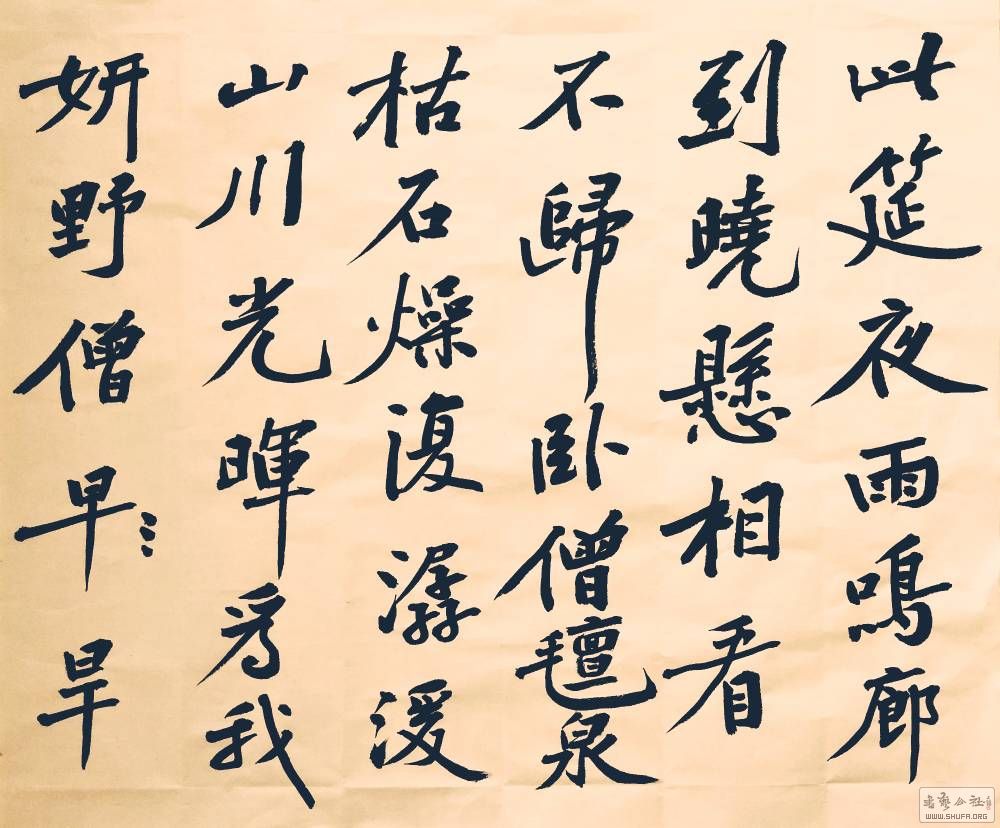 此筵夜雨鳴廊
到曉懸相看
不歸卧僧氊泉
枯石燥復潺湲
山川光暉為我
妍野僧早:旱
书艺公社
WWW.SHUFA.ORG